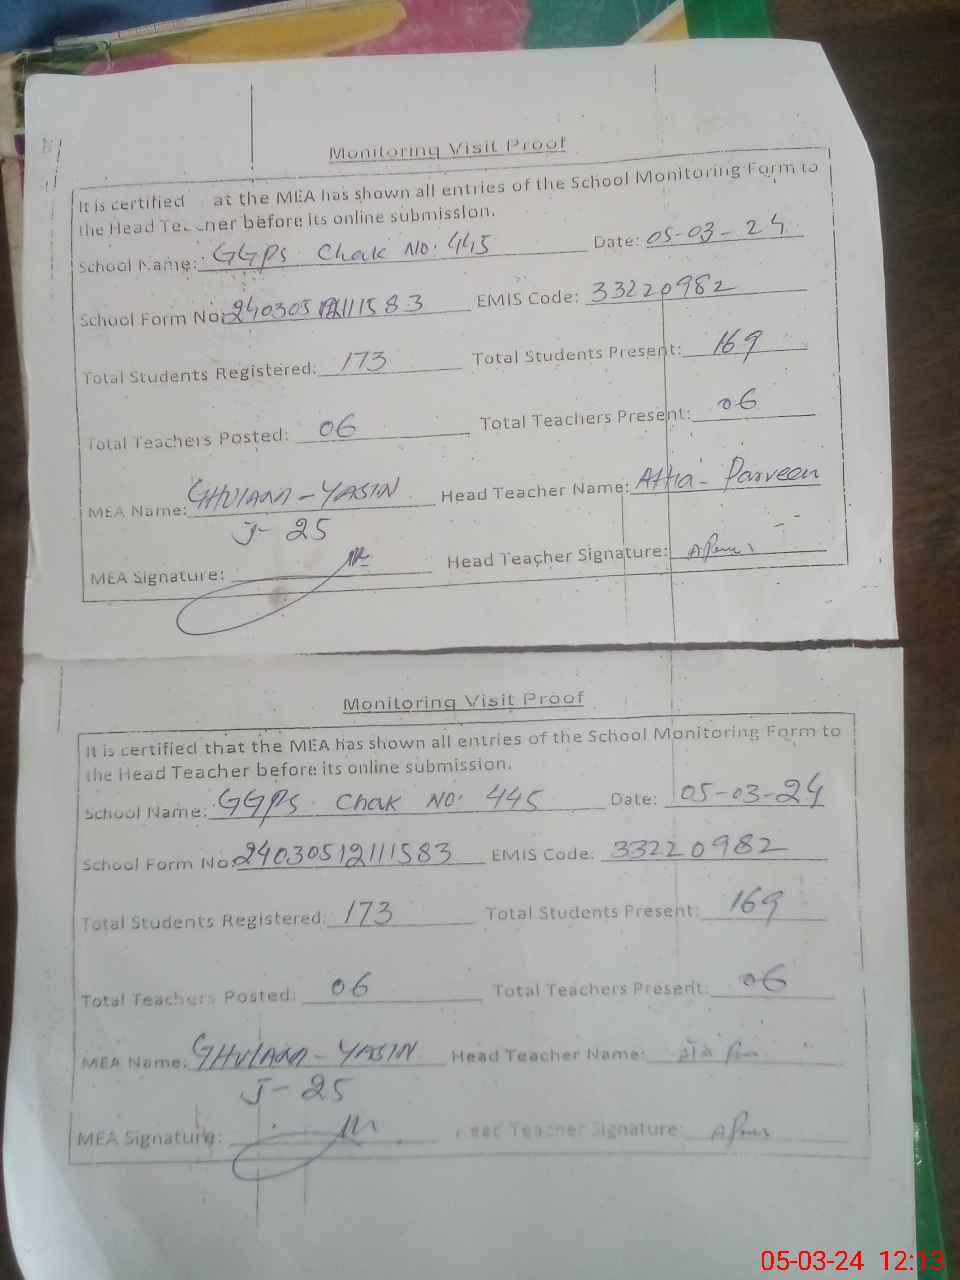 Monitoring Visit Proof
It is certified at the MEA has shown all entries of the School Monitoring Form to
the Head Te ner before its online submission.
School Name: GGPS Chak No: 445 Date: 05-03-24
School Form No: 24030512111583 EMIS Code: 33220982
Total Students Registered: 173 Total Students Present: 169
Total Teachers Posted: 06 Total Teachers Present: 06
MEA Name: GHULAM-YASIN Head Teacher Name: Attia Parveen
J-25
MEA Signature: Head Teacher Signature:
Monitoring Visit Proof
It is certified that the MEA has shown all entries of the School Monitoring Form to
the Head Teacher before its online submission.
School Name: GGPS Chak No. 445 Date: 05-03-24
School Form No: 24030512111583 EMIS Code: 33220982
Total Students Registered: 173 Total Students Present: 169
Total Teachers Posted: 06 Total Teachers Present: 06
MEA Name: GHULAM-YASIN Head Teacher Name:
J-25
MEA Signature: Head Teacher Signature:
05-03-24 12:13